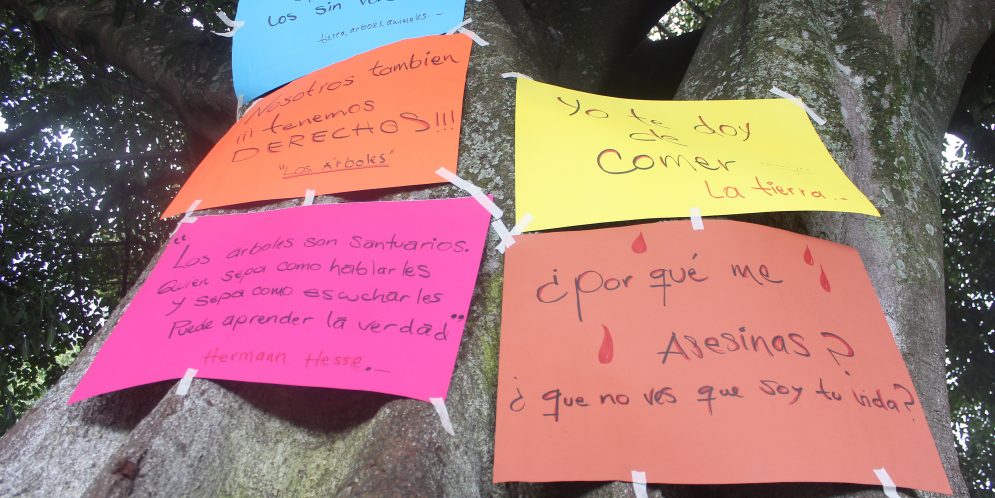 Los sin
tierra, arboles, animales._
Nosotros tambien
¡¡¡tenemos
DERECHOS!!!
"Los Árboles"
"Los arboles son Santuarios.
Quien sepa como hablarles
y sepa como escucharles
Puede aprender la verdad"
Hermann Hesse._
Yo te doy
de
Comer
La tierra...
¿Por qué me
Asesinas?
¿que no ves que soy tu vida?